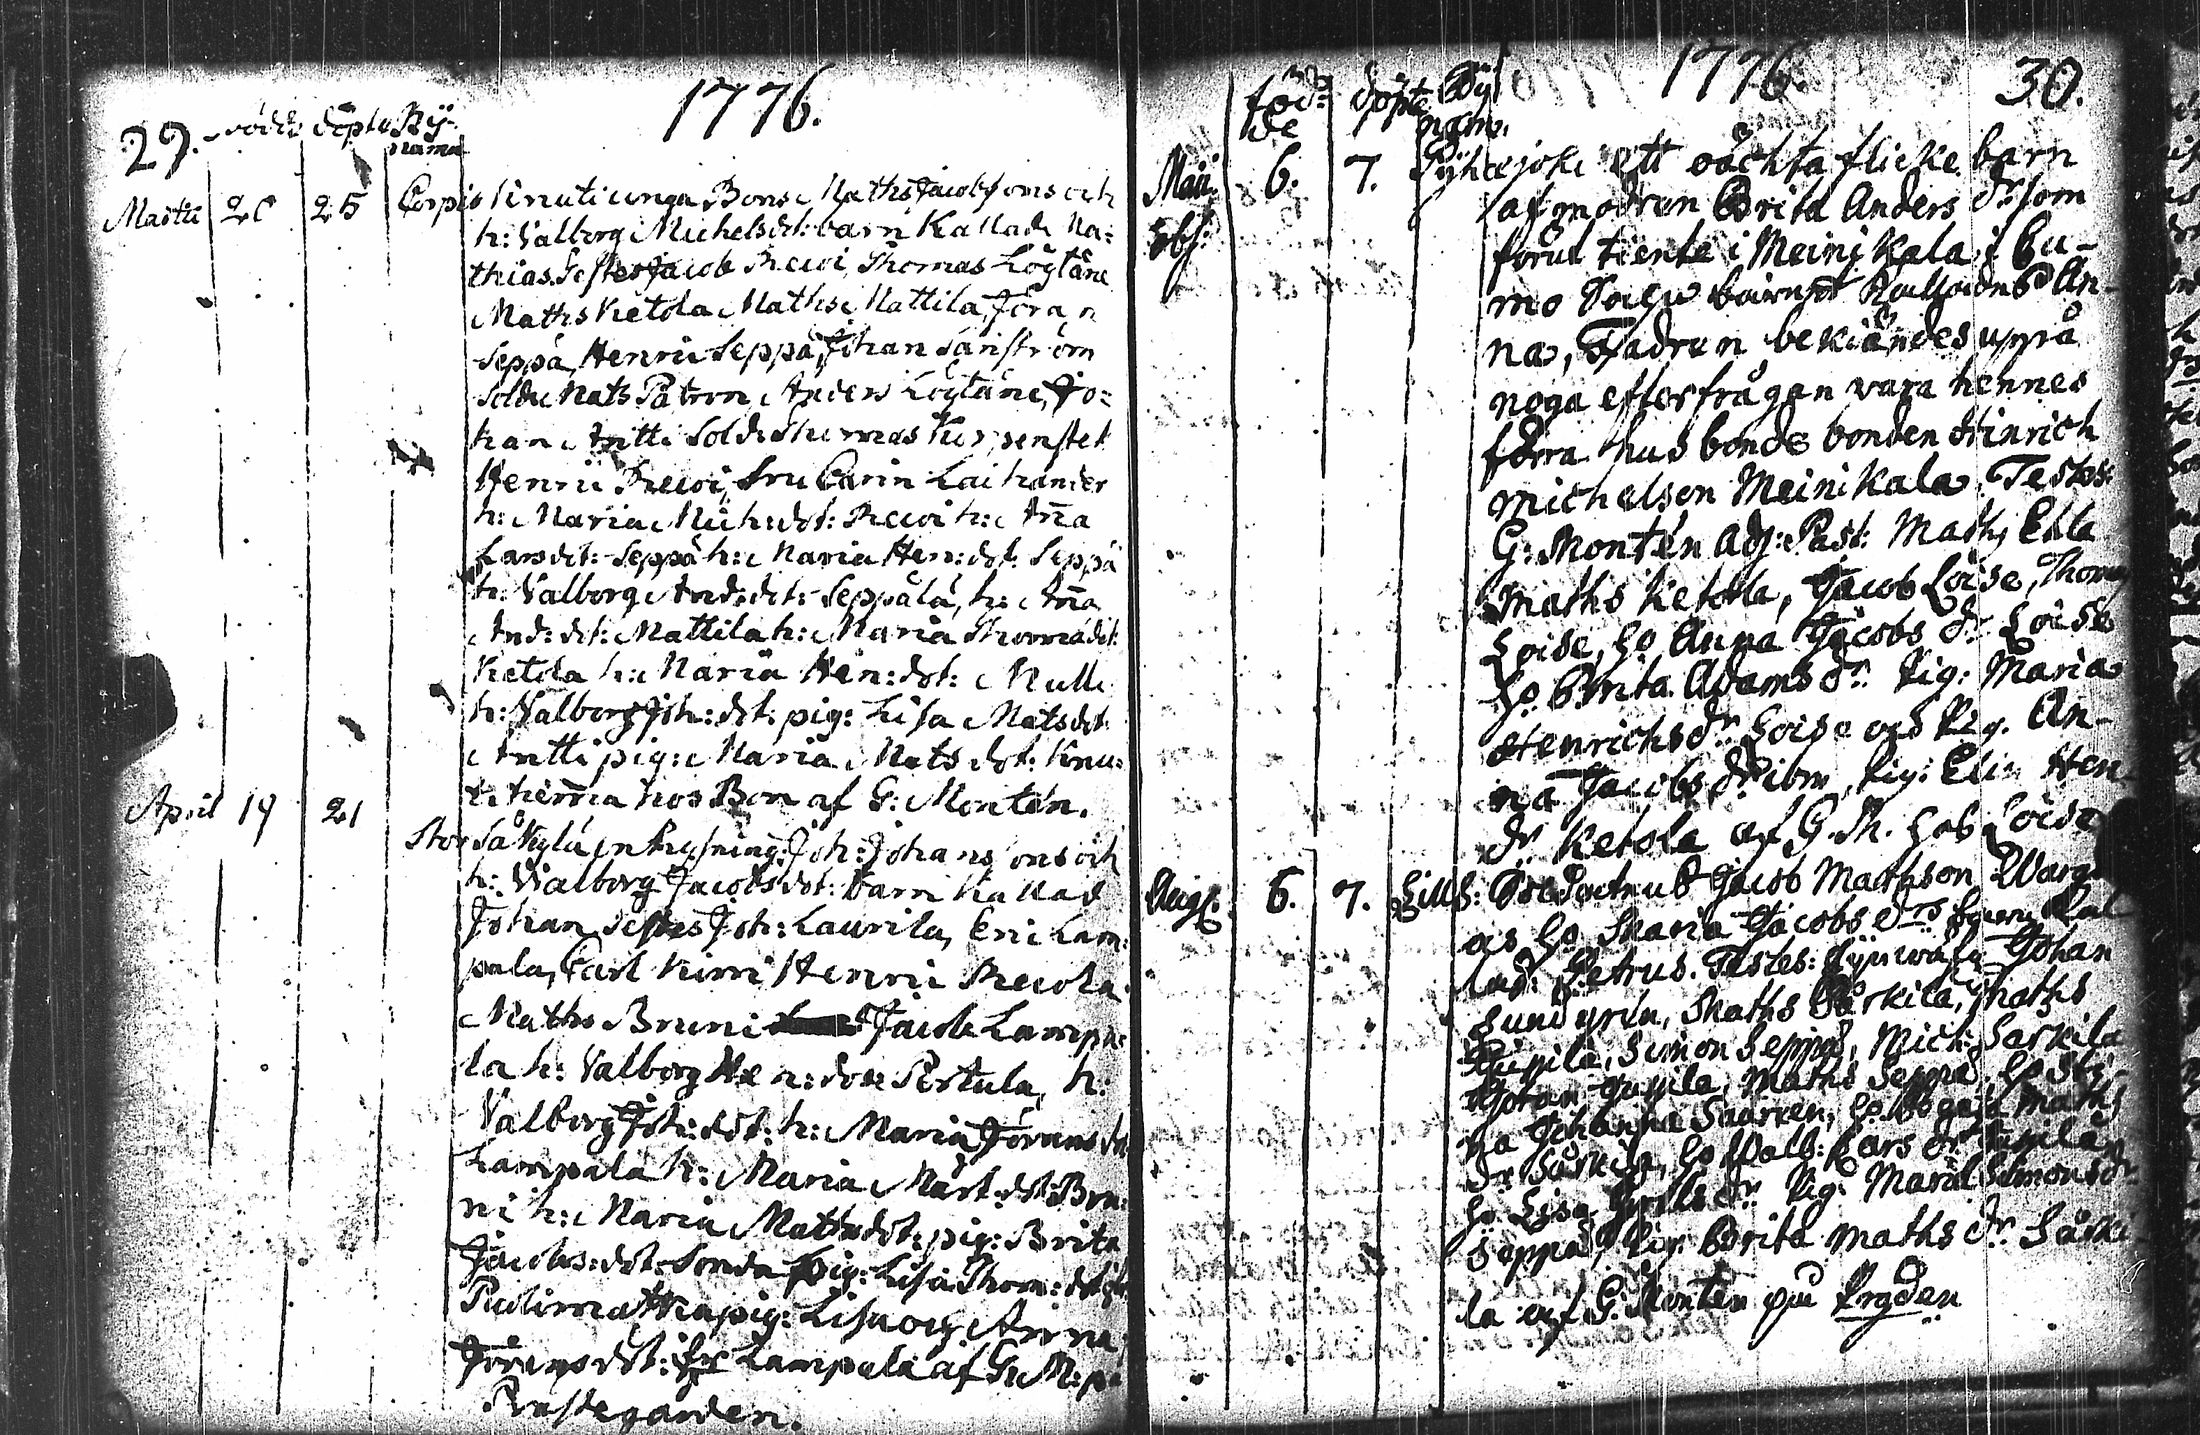 29. födde döpte By
namn
1776.
Martii 20 25 Corpis Knuti unga Bons Maths Jacobsons och
h: Valborg Michelsdot: barn Kallade Ma=
thias. Testes Jacob Rewoi, Thomas Löytäne
Maths Ketola Maths Mattila, Jöran
Seppä, Henric Seppä, Johan
Sold: Mats Patron, Anders Löytäne, Jo=
han Antti Sold: Thomas
Henric Rewoi, fru Carin
h: Maria Mich: dot: Rewoi h: Anna
Lars dot: Seppä h: Maria Hen: dot: Seppä
h: Valborg And: dot: Seppälä, h: Anna
And: dot: Mattila h: Maria Thomædot:
Ketola h: Maria Hen: dot:
h: Valborg Joh: dot: pig: Lisa Matsdot:
Antti pig: Maria Mats dot: Knu=
ti hemma hos Bon af G: Montén.
April 19 21
Stor Säkylä Johansons och
h: Valborg Jacobsdot: barn Kallad
Johan Testes Joh: Laurila, Eric Lam=
pala, Carl Kirri Henric Rewola
Maths Bruni Jacob Lampa=
la h: Valborg Hen: dot: Pertula, h:
Valborg Joh: dot: h: Maria Jörans dot
Lampala h: Maria Mårt: dot: Bru=
ni h: Maria Maths dot: pig: Brita
Jacobs: dot: pig: Lisa Thom: dot:
pig: Lisa och Anna
Jörans dot: fr Lampala af G: M: på
Prästegården.
föd= döpte By
de namn.
1776. 30.
Maii 6. 7. Pyhäjoki ett oächta flicke barn
af modren Brita Anders dr som
förut tiente i Meinikala i Eu-
mo Sokn barnet Kallades An-
na, Fadren bekiändes uppå
noga efterfrågan vara hennes
förra husbonde bonden Hinrich
Michelson Meinikala. Testes:
G: Montén Adj: Past: Maths
Maths Ketola, Jacob Loise, Thom
Loise, Ho Anna Jacobs dr Loise
Ho Brita Adams dr Pig: Maria
Henrichs dr Loise och Pig. An-
na Jacobs dr ibm, Pig: Elin Hen
dr Ketola af G. M. hos Loise
Aug: 6. 7. Soldatens Jacob Mathson Warg
as Ho Maria Jacobs drs Kal
lad: Petrus. Testes: Johan
Sundgrén, Maths Särkilä, Maths
Simon Seppä, Mich: Särkilä
Göran Maths Seppä, Ho
na Johanna Ho Maths
dr Särkilä, Ho Walb: Lars dr
Ho Lisa dr Pig: Maria Simons dr
Seppä, Pig: Brita Maths dr Särki
la af G. Montén på Prgden